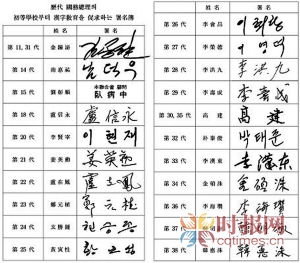 歷代 國務總理의
初等學校부터 漢字敎育을 促求하는 署名簿
第11, 31代 金鍾泌
第14代 南悳祐 남덕우
第15代 劉彰順 本聯合會 顧問
臥病中
第18代 盧信永 盧信永
第20代 李賢宰 이현재
第21代 姜英勳 姜英勳
第22代 盧在鳳 盧在鳳
第23代 鄭元植 鄭元植
第24代 玄勝鍾 현승종
第25代 黃寅性
第26代 李會昌 이회창
第27代 李榮德 이영덕
第28代 李洪九 李洪九
第29代 李壽成 李壽成
第30, 35代 高建 高建
第32代 朴泰俊 박태준
第33代 李漢東 李漢東
第34代 金碩洙 金碩洙
第36代 李海瓚 李海瓚
第37代 韓明淑
第38代 韓悳洙 韓悳洙
时报网
cqtimes.cn